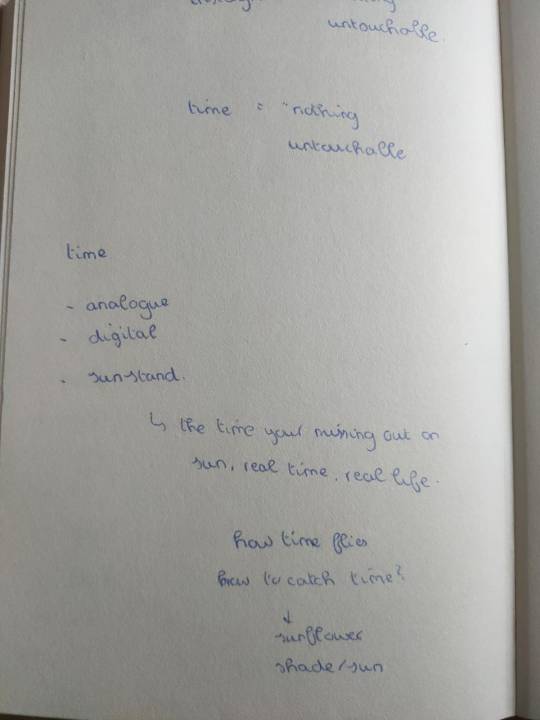 untouchable.
time = "nothing
untouchable
time
- analogue
- digital
- sun-stand.
↳ the time your missing out on
sun, real time, real life.
how time flies
how to catch time?
↓
sunflower
shade/sun